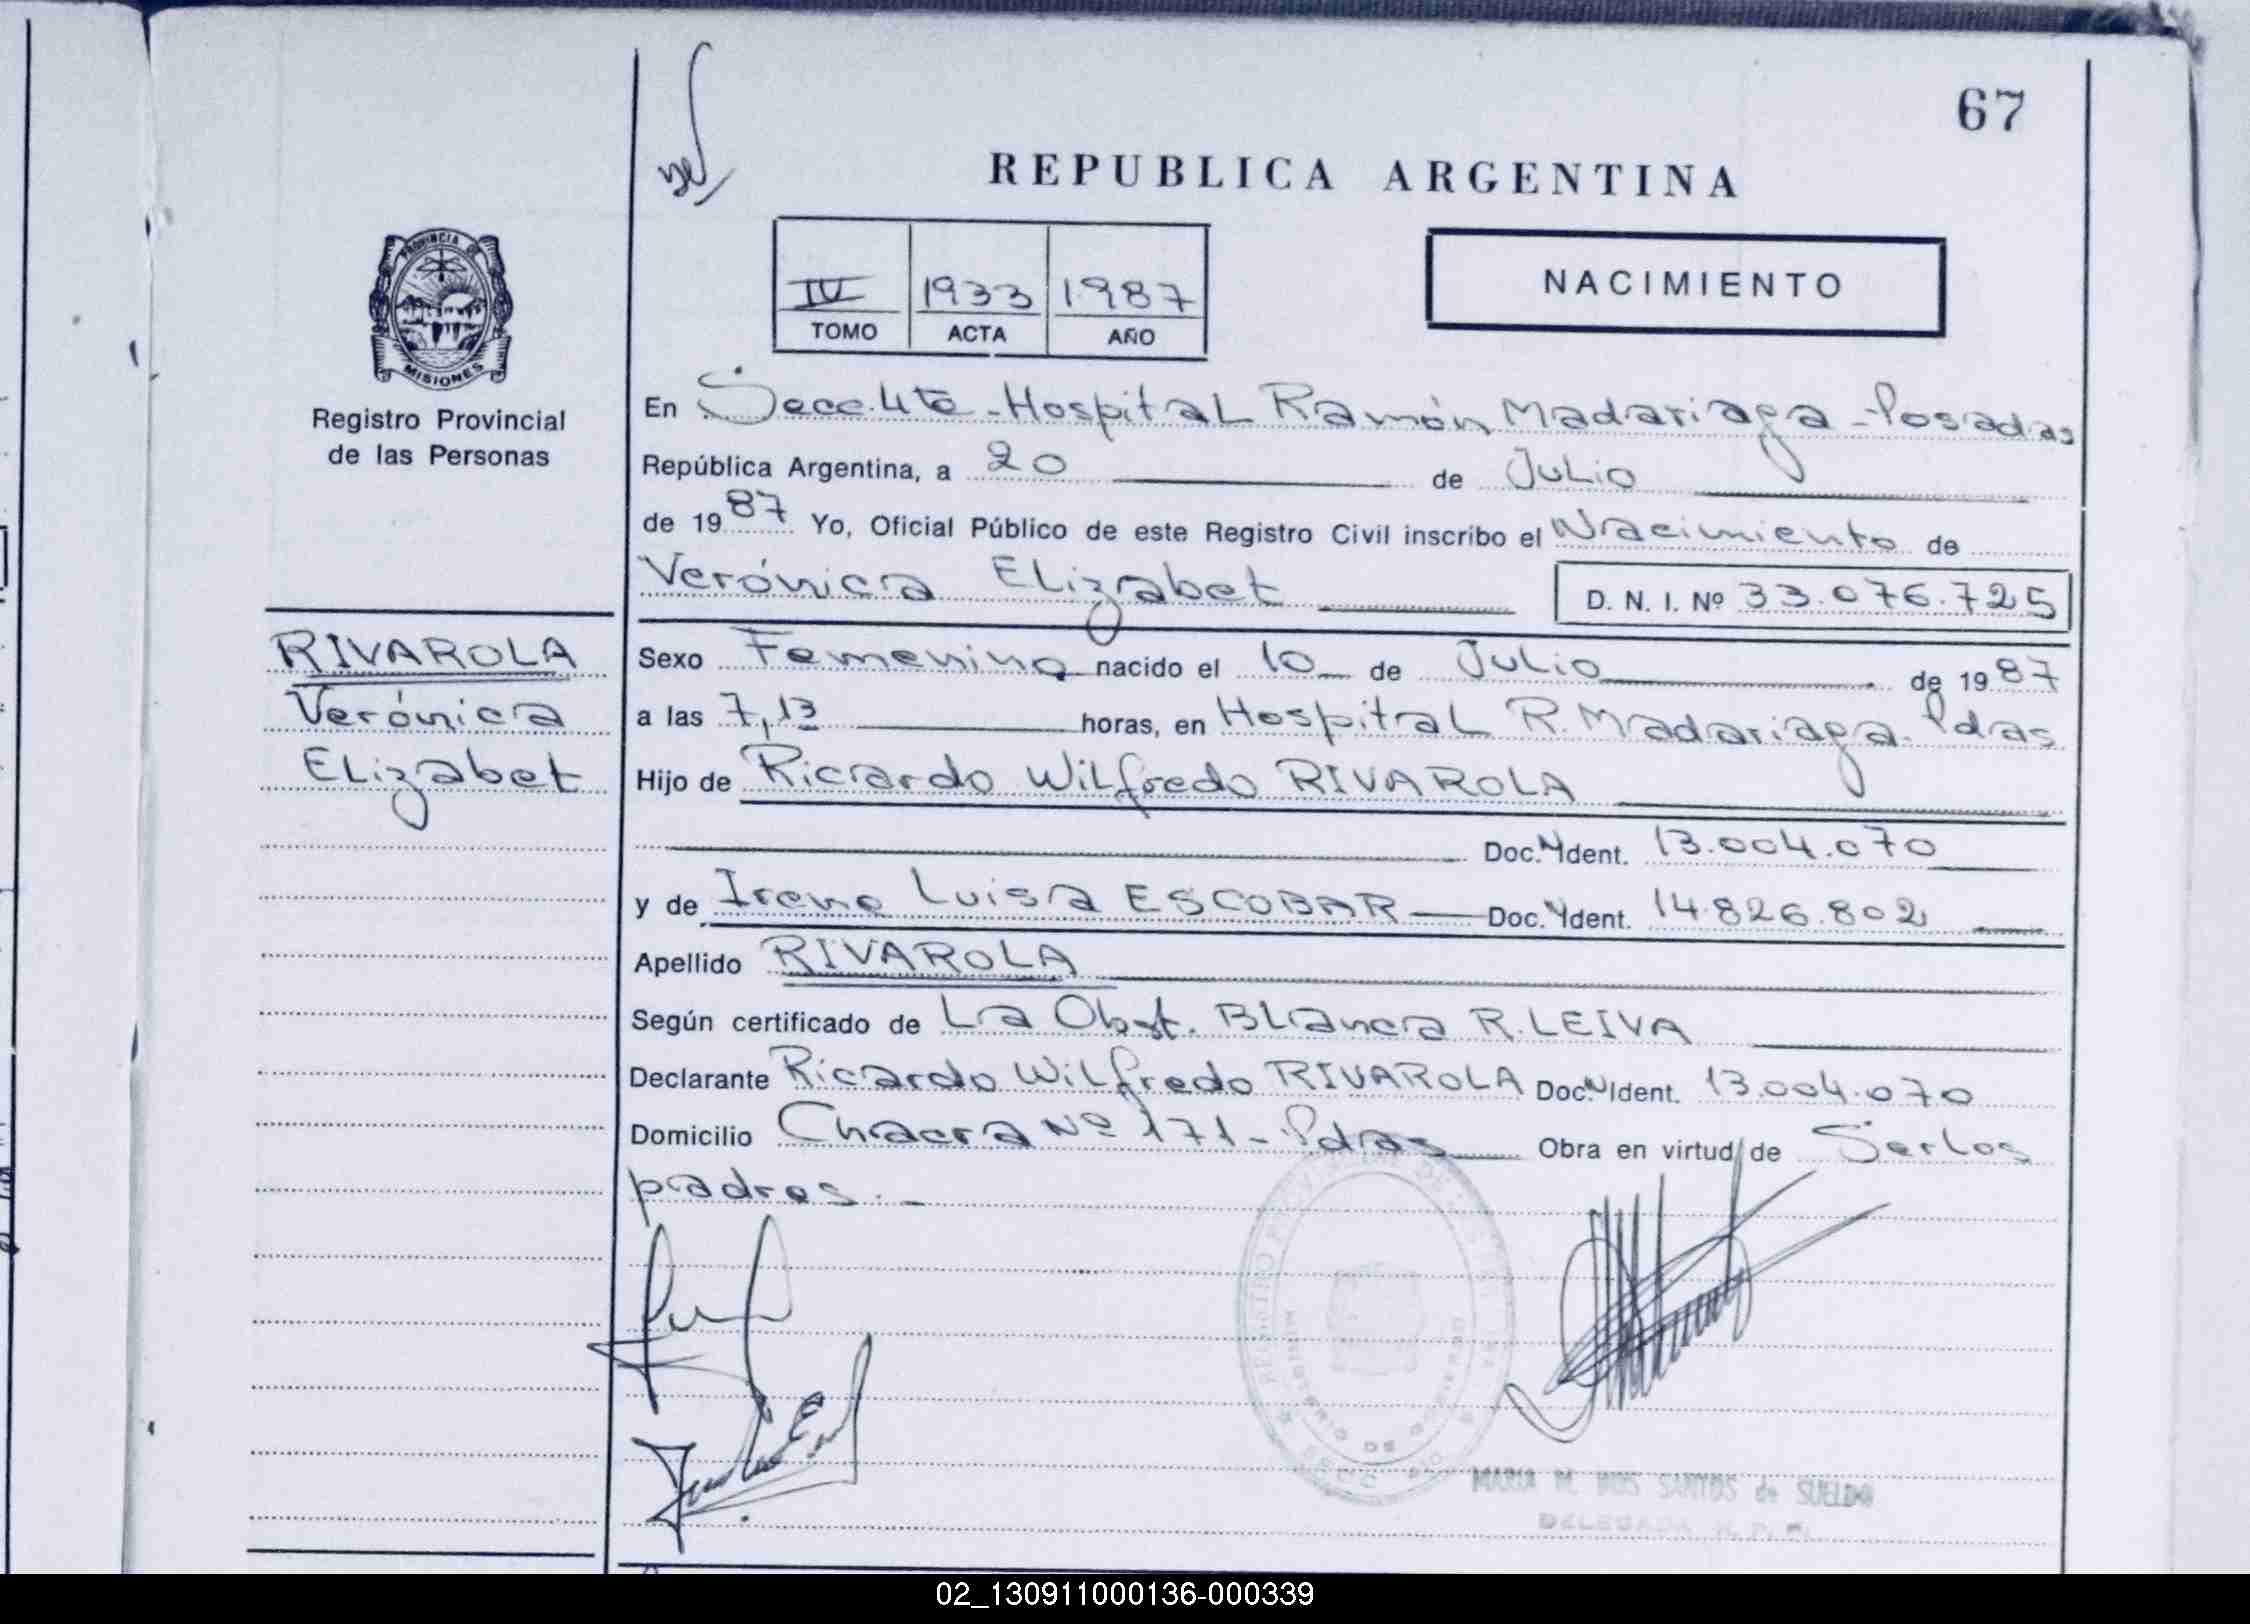 67
REPUBLICA ARGENTINA
IV 1933 1987
TOMO ACTA AÑO
NACIMIENTO
PROVINCIA DE
MISIONES
Registro Provincial
de las Personas
RIVAROLA
Verónica
Elizabet
En Secc. 4ta - Hospital Ramón Madariaga - Posadas
República Argentina, a 20 de Julio
de 1987 Yo, Oficial Público de este Registro Civil inscribo el Nacimiento de
Verónica Elizabet D. N. I. Nº 33.076.725
Sexo Femenino nacido el 10 de Julio de 1987
a las 7,13 horas, en Hospital R. Madariaga - Pdas
Hijo de Ricardo Wilfredo RIVAROLA
Doc. N Ident. 13.004.070
y de Irene Luisa ESCOBAR Doc. N Ident. 14.826.802
Apellido RIVAROLA
Según certificado de La Obst. Blanca R. LEIVA
Declarante Ricardo Wilfredo RIVAROLA Doc. N Ident. 13.004.070
Domicilio Chacra Nº 171 - Pdas Obra en virtud de Ser los
padres. -
MARIA M. DOS SANTOS de SUELDO
DELEGADA R. P. P.
02_130911000136-000339